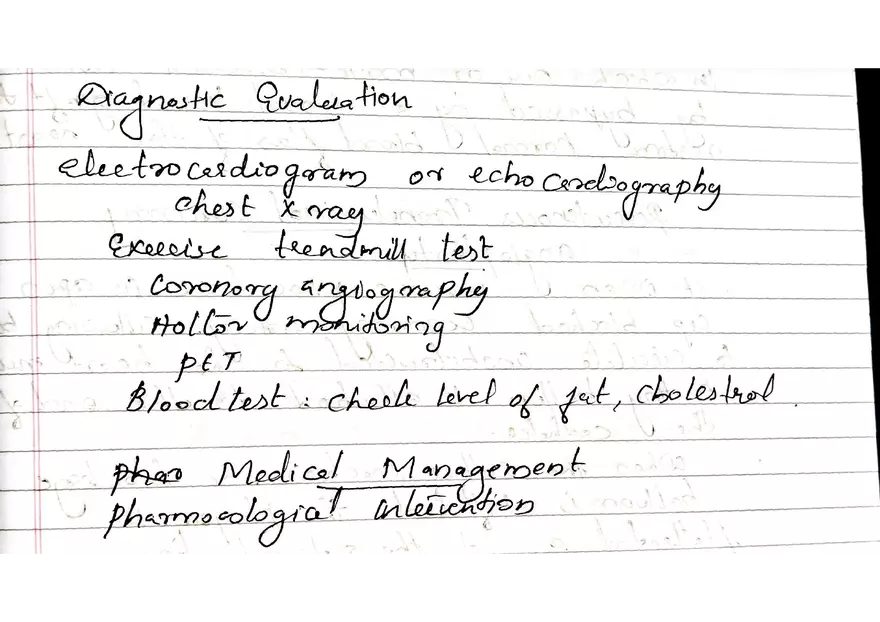 Diagnostic Evaluation
electrocardiogram or echocardiography
chest x ray
Exercise treadmill test
Coronory angiography
Holtor monitoring
PET
Blood test : check level of fat, cholestrol.
Medical Management
pharmocologial intervention